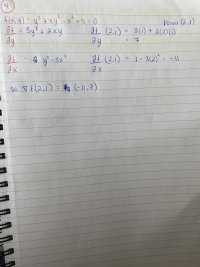 4
f(x,y) = y³ + xy² - x³ + 5 = 0 Point (2,1)
∂f/∂y = 3y² + 2xy ∂f/∂y (2,1) = 3(1) + 2(2)(1)
= 7
∂f/∂x = y² - 3x² ∂f/∂x (2,1) = 1 - 3(2)² = -11
so ∇f(2,1) = (-11, 7)